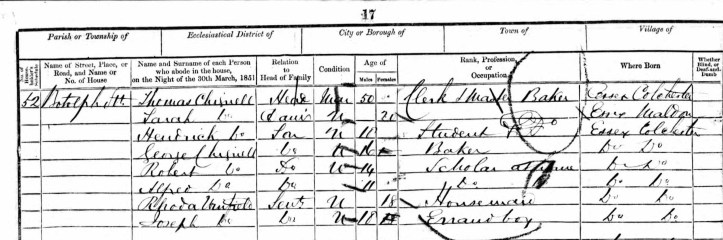 17
Parish or Township of Ecclesiastical District of City or Borough of Town of Village of
Name of Street, Place, or Road, and Name or No. of House
Name and Surname of each Person who abode in the house, on the Night of the 30th March, 1851
Relation to Head of Family
Condition
Age of
Males Females
Rank, Profession, or Occupation
Where Born
Whether Blind, or Deaf-and-Dumb
52 Botolph St Thomas Chisnell Head Mar 50 Baker Essex Colchester
Sarah Do U Essex Maldon
Do Son U Student Essex Colchester
George Chisnell Do U 16 Baker Do Do
Robert Do Do U 14 Scholar at home Do Do
Alfred Do Do 11 Do Do Do
Rhoda Servt U 18 Housemaid Do Do
Joseph Do Do U 18 Errand boy Do Do